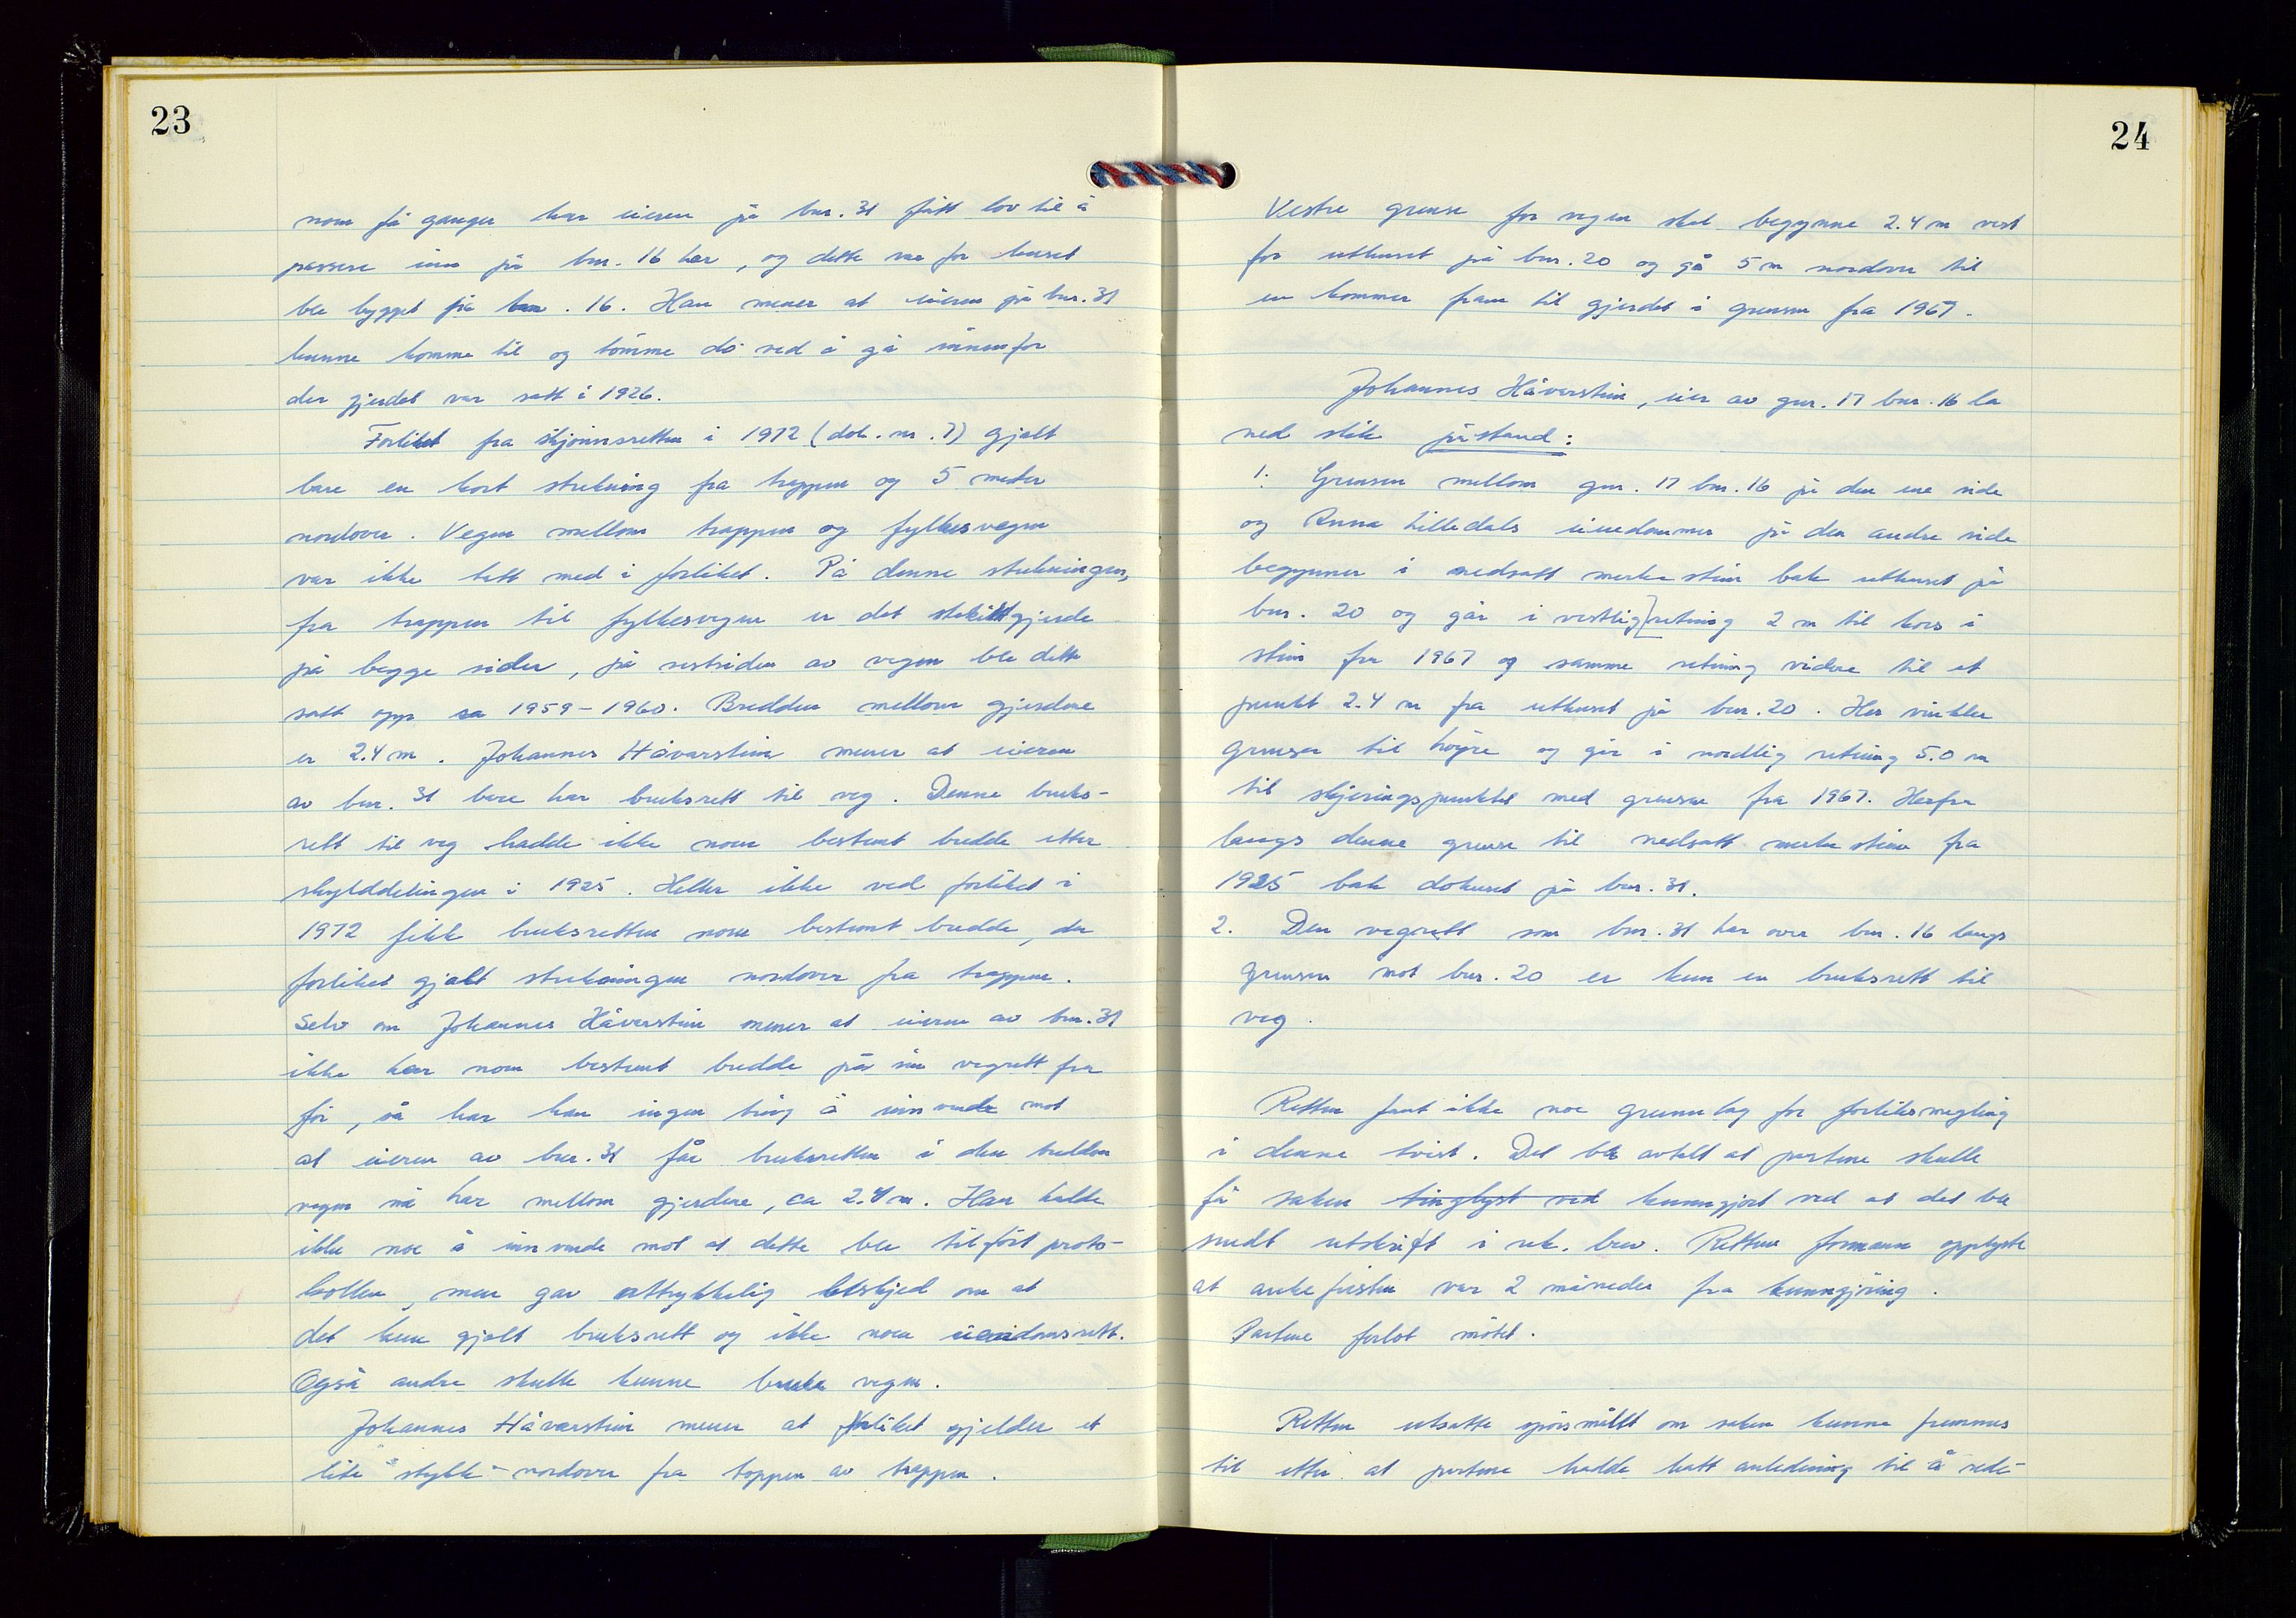 23
noen få ganger har eieren på bnr. 31 fått lov til å
passere inn på bnr. 16 her, og dette var før huset
ble bygget på bnr. 16. Han mener at eieren på bnr. 31
kunne komme til og tömme do ved å gå innenfor
der gjerdet var satt i 1926.
Forliket fra skjönnsretten i 1972 (dok. nr. 7) gjalt
bare en kort strekning fra trappen og 5 meter
nordover. Vegen mellom trappen og fylkesvegen
var ikke tatt med i forliket. På denne strekningen,
fra trappen til fylkesvegen er det stakittgjerde
på begge sider, på vestsiden av vegen ble dette
satt opp ca 1959-1960. Bredden mellom gjerdene
er 2.4 m. Johannes Håvarstein mener at eieren
av bnr. 31 bare har bruksrett til veg. Denne bruks-
rett til veg hadde ikke noen bestemt bredde etter
skylddelingen i 1925. Heller ikke ved forliket i
1972 fikk bruksretten noen bestemt bredde, da
forliket gjalt strekningen nordover fra trappen.
Selv om Johannes Håvarstein mener at eieren av bnr. 31
ikke har noen bestemt bredde på sin vegrett fra
för, så har han ingen ting å innvende mot
at eieren av bnr. 31 får bruksretten i den bredden
vegen nå har mellom gjerdene, ca 2.4 m. Han hadde
ikke noe å innvende mot at dette ble tilfört proto-
kollen, men gav uttrykkelig beskjed om at
det kun gjalt bruksrett og ikke noen eiendomsrett.
Også andre skulle kunne bruke vegen.
Johannes Håvarstein mener at forliket gjelder et
lite stykke nordover fra toppen av trappen.
24
Vestre grense for vegen skal begynne 2.4 m vest
for uthuset på bnr. 20 og gå 5 m nordover til
en kommer fram til gjerdet i grensen fra 1967.
Johannes Håvarstein, eier av gnr. 17 bnr. 16 la
ned slik påstand:
1. Grensen mellom gnr. 17 bnr. 16 på den ene side
og Anna Lilledals eiendommer på den andre side
begynner i nedsatt merkestein bak uthuset på
bnr. 20 og går i vestlig retning 2 m til kors i
stein fra 1967 og samme retning videre til et
punkt 2.4 m fra uthuset på bnr. 20. Her vinkler
grensen til höyre og går i nordlig retning 5.0 m
til skjeringspunktet med grensen fra 1967. Herfra
langs denne grense til nedsatt merkestein fra
1925 bak dohuset på bnr. 31.
2. Den vegrett som bnr. 31 har over bnr. 16 langs
grensen mot bnr. 20 er kun en bruksrett til
veg.
Retten fant ikke noe grunnlag for forliksmegling
i denne tvist. Det ble avtalt at partene skulle
få saken tinglyst ved kunngjort ved at det ble
sendt utskrift i rek. brev. Rettens formann opplyste
at ankefristen var 2 måneder fra kunngjöring.
Partene forlot mötet.
Retten utsatte spörsmålet om saken kunne fremmes
til etter at partene hadde hatt anledning til å rede-